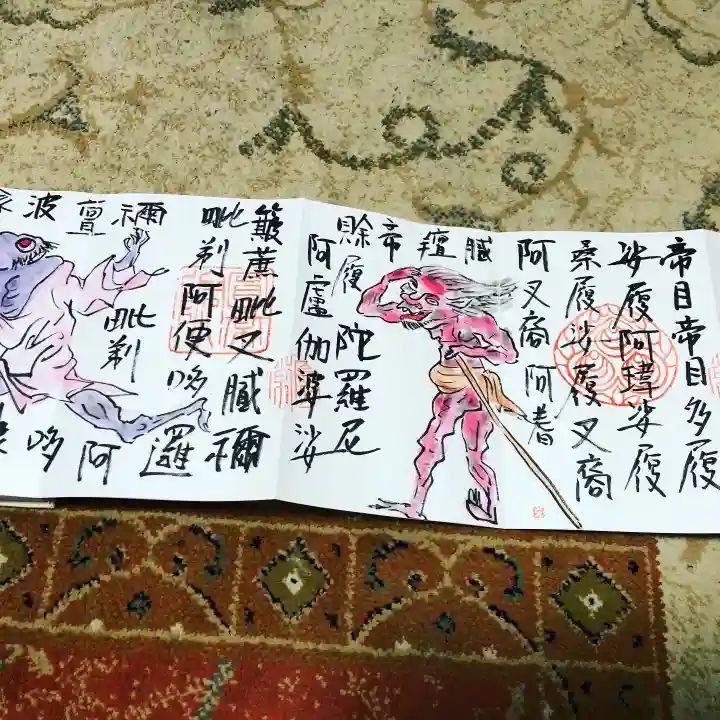 帝目帝目多履
娑履阿瑋娑履
桑履沙履叉裔
阿叉裔阿耆
膩羶帝
賒履陀羅尼
阿盧伽婆娑
簸蔗毗叉膩禰
毗剃阿便哆邏
禰亶波
毗剃
阿
哆